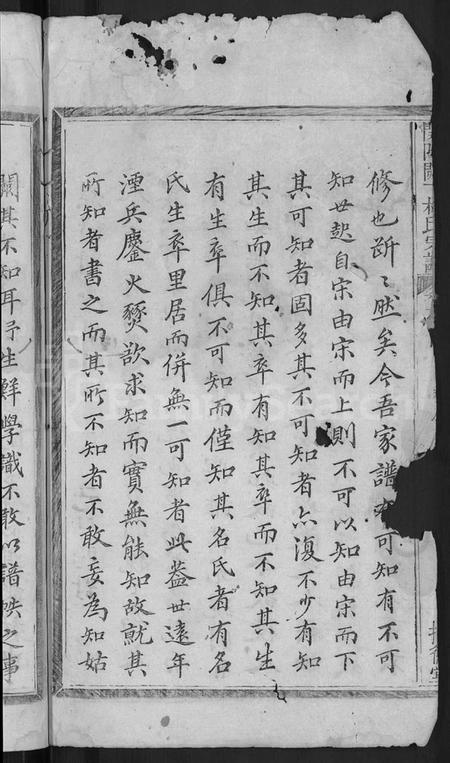 修也斷斷然矣今吾家譜可知有不可
知世起自宋由宋而上則不可以知由宋而下
其可知者固多其不可知者亦復不少有知
其生而不知其卒有知其卒而不知其生
有生卒俱不可知而僅知其名氏者有名
氏生卒里居而併無一可知者此蓋世遠年
湮兵鏖火燹欲求知而實無能知故就其
所知者書之而其所不知者不敢妄為知姑
闕其不知耳予生鮮學識不敢以譜帙之事